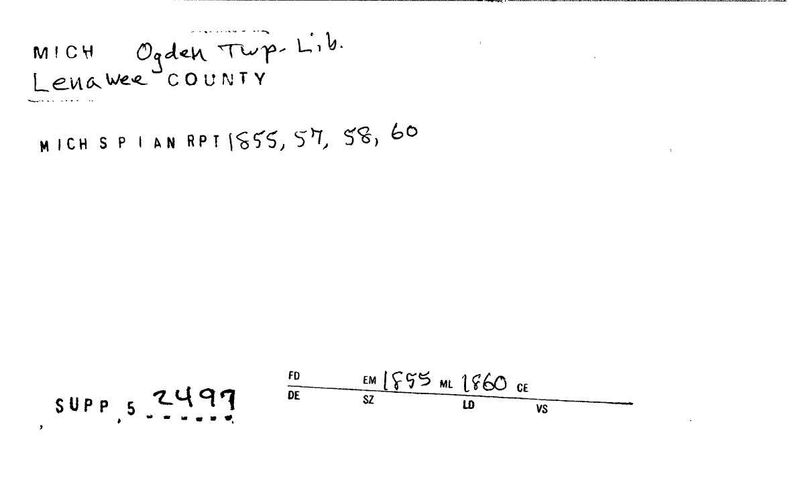 MICH Ogden Twp. Lib.
Lenawee COUNTY
MICH S P I AN RPT 1855, 57, 58, 60
FD EM 1855 ML 1860 CE
SUPP 5 2497
DE SZ LD VS